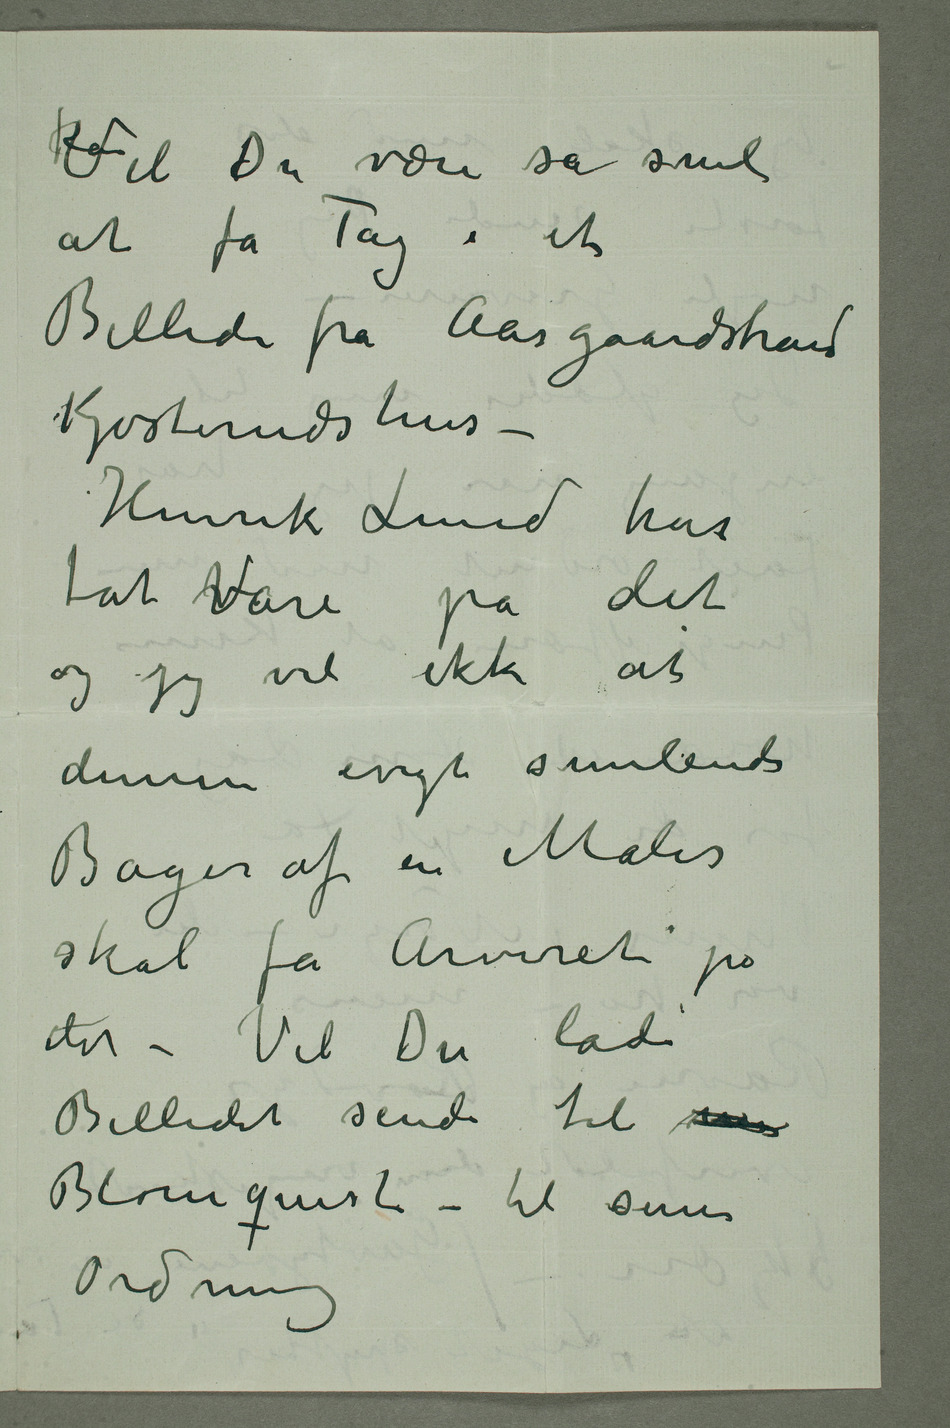 Vil Du være så snil
at få Tag i et
Billede fra Aasgaardstrand
Kjøsterudshus –
Henrik Lund har
tat Vare på det
og jeg vil ikke at
denne evigt smilende
Bager af en Maler
skal få Arveret på
det – Vil Du lade
Billedet sende til
Blomquist – til senere
Ordning